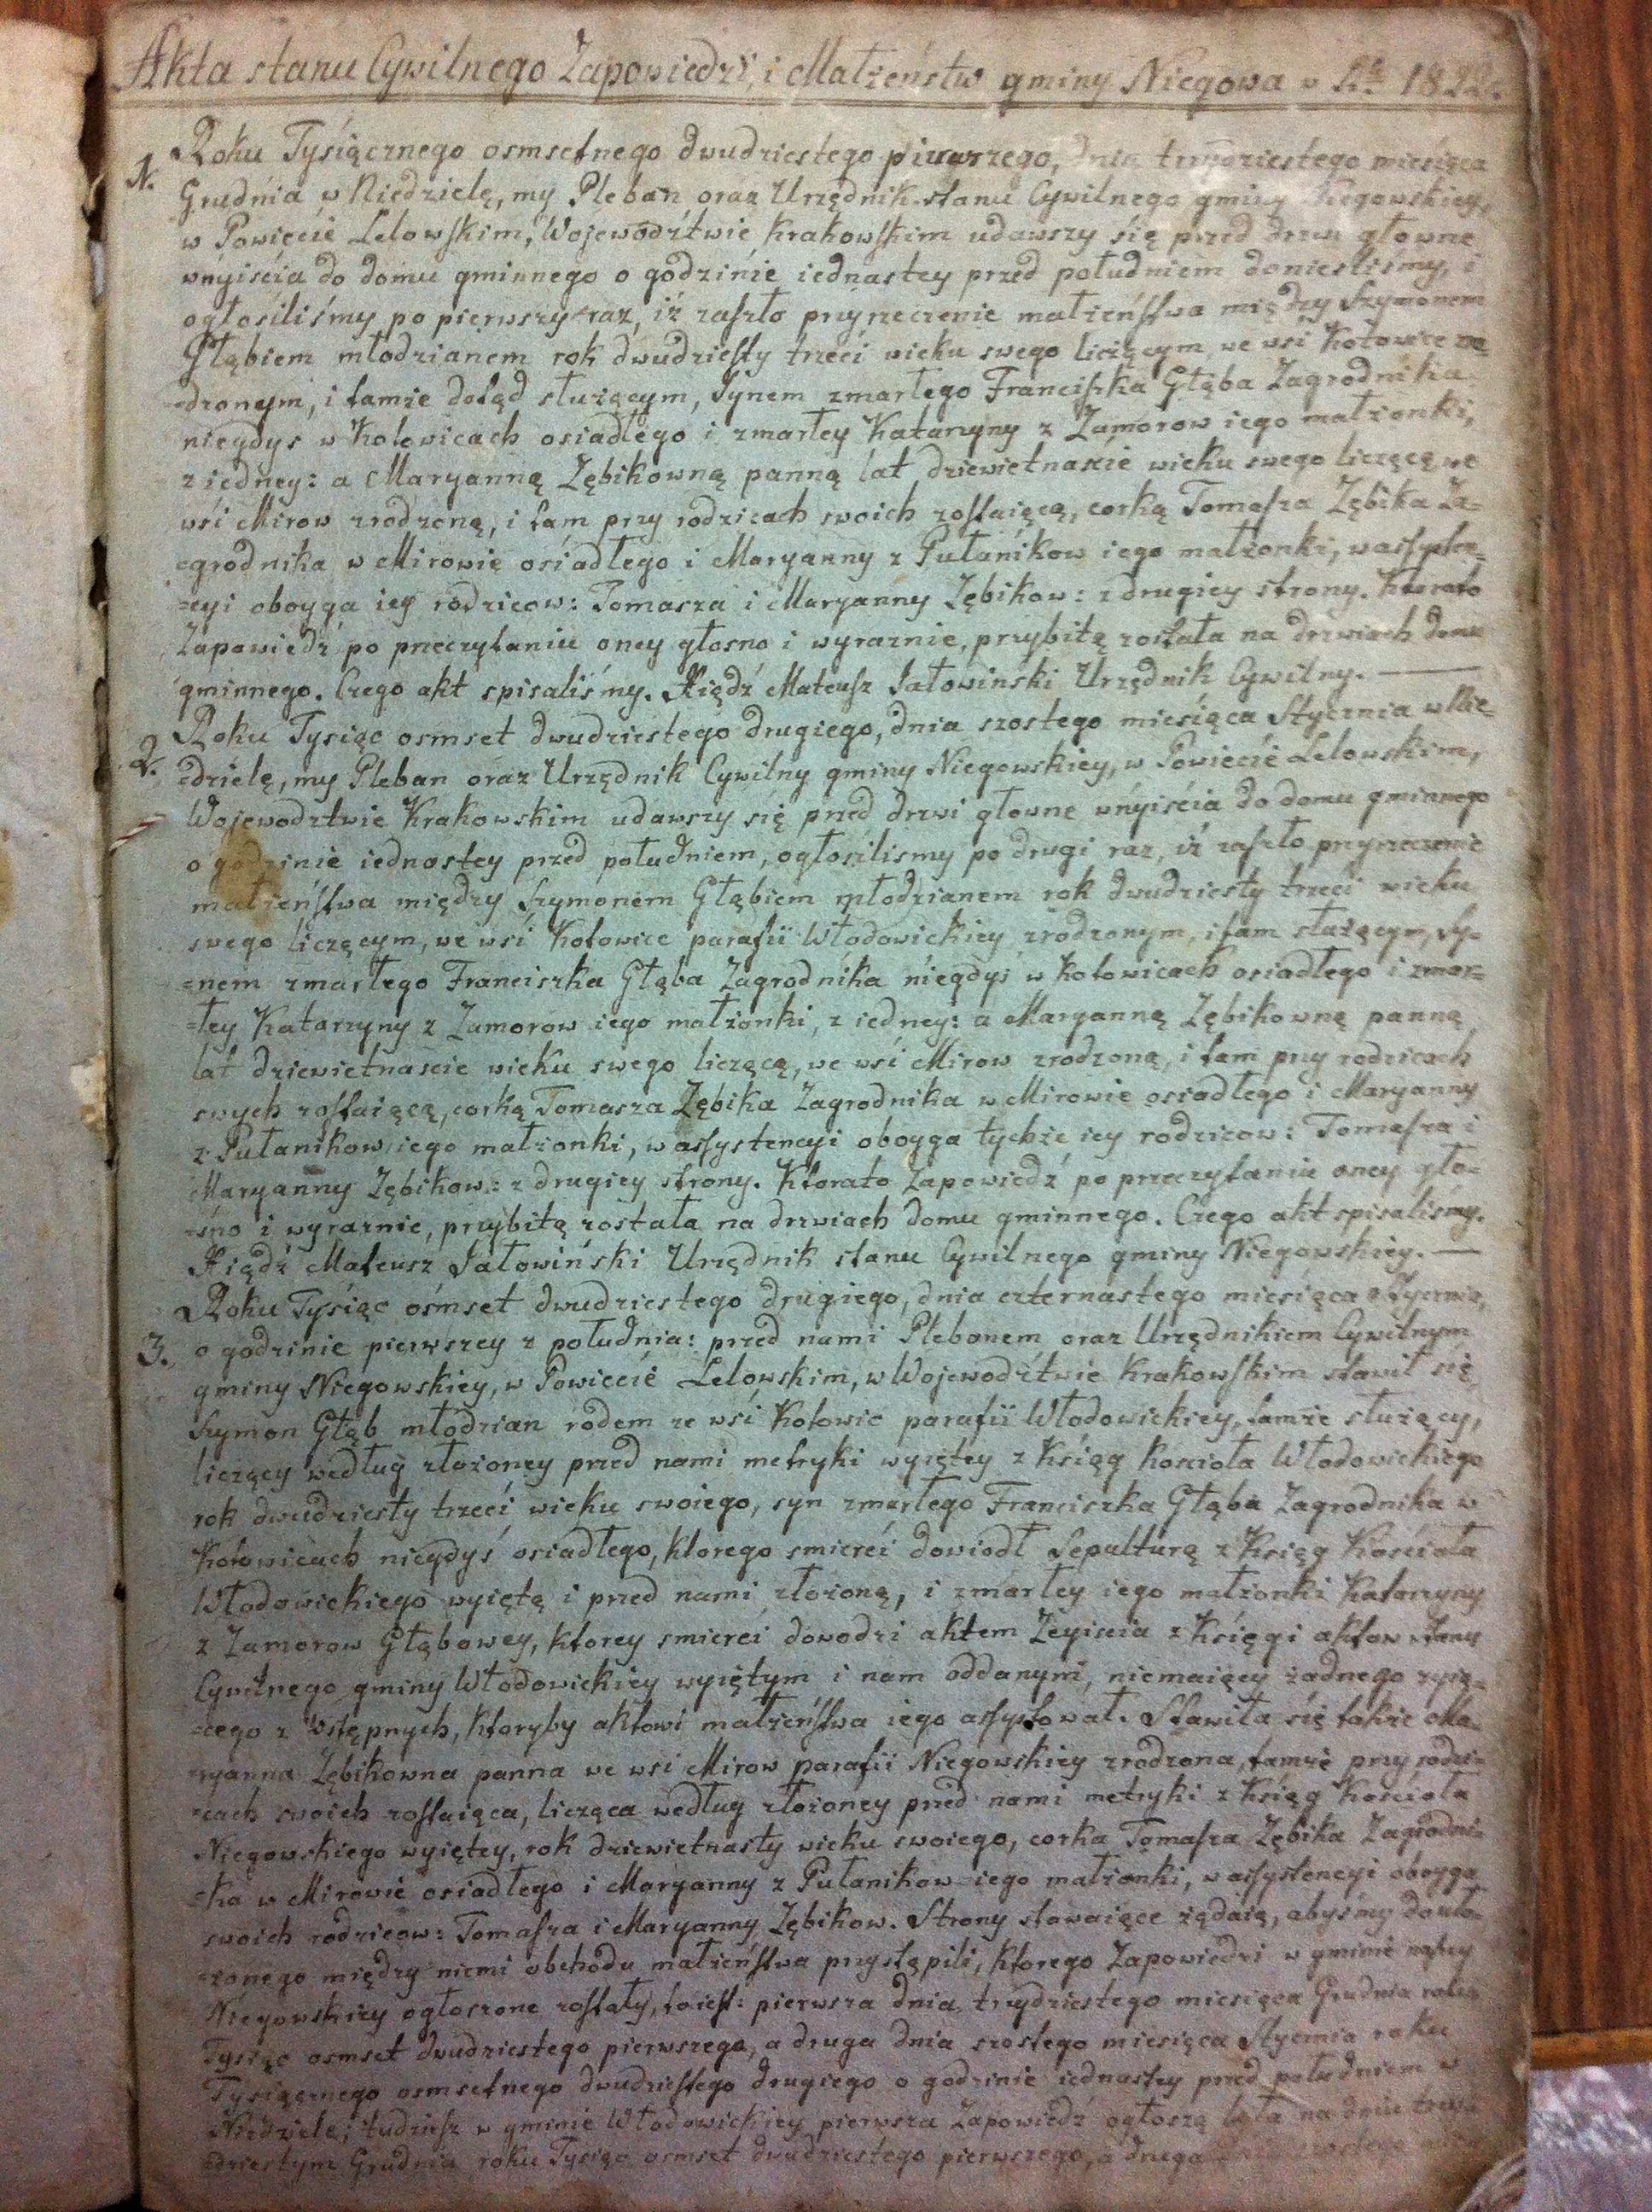 Akta stanu Cywilnego Zapowiedzi, i Małżeństw gminy Niegowa w R. 1822.
1. Roku Tysiącznego osmsetnego dwudziestego pierwszego, dnia trzydziestego miesiąca
Grudnia w Niedzielę, my Pleban oraz Urzędnik stanu Cywilnego gminy Niegowskiey,
w Powiecie Lelowskim, Wojewodźtwie Krakowskim udawszy się przed drzwi głowne
wnyiścia do domu gminnego o godzinie iednastey przed południem donieslismy, i
ogłosiliśmy po pierwszy raz, iż zaszło przyrzeczenie małżeństwa między Szymonem
Głąbiem młodzianem rok dwudziesty trzeci wieku swego liczącym we wsi Kotowice zro=
=dzonym, i tamże dotąd służącym, Synem zmarłego Franciszka Głąba Zagrodnika
niegdys w Kotowicach osiadłego i zmarłey Katarzyny z Zamorow iego małżonki,
z iedney: a Maryanną Zębikowną panną lat dziewietnascie wieku swego liczącą we
wśi Mirow zrodzoną, i tam przy rodzicach swoich zostaiącą, corką Tomasza Zębika Za=
=grodnika w Mirowie osiadłego i Maryanny z Pułanikow iego małżonki, w assysten=
=cyi oboyga iey rodzicow: Tomasza i Maryanny Zębikow: z drugiey strony. Ktorato
Zapowiedź po przeczytaniu oney głosno i wyraznie, przybitą została na drzwiach domu
gminnego. Czego akt spisaliśmy. Xiądź Mateusz Sałowiński Urzędnik Cywilny. —
2. Roku Tysiąc osmset dwudziestego drugiego, dnia szostego miesiąca Stycznia w Nie=
=dzielę, my Pleban oraz Urzędnik Cywilny gminy Niegowskiey, w Powiecie Lelowskim,
Wojewodztwie Krakowskim udawszy się przed drzwi głowne wnyiścia do domu gminnego
o godzinie iednastey przed południem, ogłosilismy po drugi raz, iż zaszło przyrzeczenie
małżeństwa między Szymonem Głąbiem młodzianem rok dwudziesty trzeci wieku
swego liczącym, we wsi Kotowice parafii Włodowickiey zrodzonym, i tam służącym, Sy=
=nem zmarłego Franciszka Głąba Zagrodnika niegdyś w Kotowicach osiadłego i zmar=
=łey Katarzyny z Zamorow iego małżonki, z iedney: a Maryanną Zębikowną panną
lat dziewietnascie wieku swego liczącą, we wśi Mirow zrodzoną, i tam przy rodzicach
swych zostaiącą, corką Tomasza Zębika Zagrodnika w Mirowie osiadłego i Maryanny
z Pułanikow iego małżonki, w assystencyi oboyga tychże iey rodzicow: Tomasza i
Maryanny Zębikow: z drugiey strony. Ktorato Zapowiedź po przeczytaniu oney gło=
=sno i wyraznie, przybitą została na drzwiach domu gminnego. Czego akt spisaliśmy.
Xiądź Mateusz Sałowiński Urzędnik stanu Cywilnego gminy Niegowskiey. —
3. Roku Tysiąc ośmset dwudziestego drugiego, dnia czternastego miesiąca Stycznia,
o godzinie pierwszey z południa: przed nami Plebanem oraz Urzędnikiem Cywilnym
gminy Niegowskiey, w Powiecie Lelowskim, w Wojewodźtwie Krakowskim stawił się
Szymon Głąb młodzian rodem ze wśi Kotowic parafii Włodowickiey, tamże służący,
liczący według złożoney przed nami metryki wyiętey z Ksiąg Kościoła Włodowickiego
rok dwudziesty trzeci wieku swoiego, syn zmarłego Franciszka Głąba Zagrodnika w
Kotowicach niegdyś osiadłego, ktorego smierci dowiodł Sepulturą z Ksiąg Kościoła
Włodowickiego wyiętą i przed nami złożoną, i zmarłey iego małżonki Katarzyny
z Zamorow Głąbowey, ktorey smierci dowodzi aktem Zeyiscia z Księgi aktow stanu
Cywilnego gminy Włodowickiey wyiętym i nam oddanym, niemaiący żadnego żyią=
=cego z Wstępnych, ktoryby aktowi małżeństwa iego assystował. Stawiła się także Ma=
=ryanna Zębikowna panna we wsi Mirow parafii Niegowskiey zrodzona, tamże przy rodzi=
=cach swoich zostaiąca, licząca według złożoney przed nami metryki z Ksiąg Kościoła
Niegowskiego wyiętey, rok dziewietnasty wieku swoiego, corka Tomasza Zębika Zagrodni=
=ka w Mirowie osiadłego i Maryanny z Pułanikow iego małżonki, w assystencyi oboyga
swoich rodzicow: Tomasza i Maryanny Zębikow. Strony stawaiące żądaią, abyśmy do uło=
=żonego między niemi obchodu małżeństwa przystąpili, ktorego Zapowiedzi w gminie naszey
Niegowskiey ogłoszone zostały, to iest: pierwsza dnia trzydziestego miesiąca Grudnia roku
Tysiąc osmset dwudziestego pierwszego, a druga dnia szostego miesiąca Stycznia roku
Tysiącznego osmsetnego dwudziestego drugiego o godzinie iednastey przed południem w
Niedziele; tudziesz w gminie Włodowickiey pierwsza Zapowiedź ogłoszą była na dniu trzy=
=dziestym Grudnia roku Tysiąc osmset dwudziestego pierwszego, a druga szostego